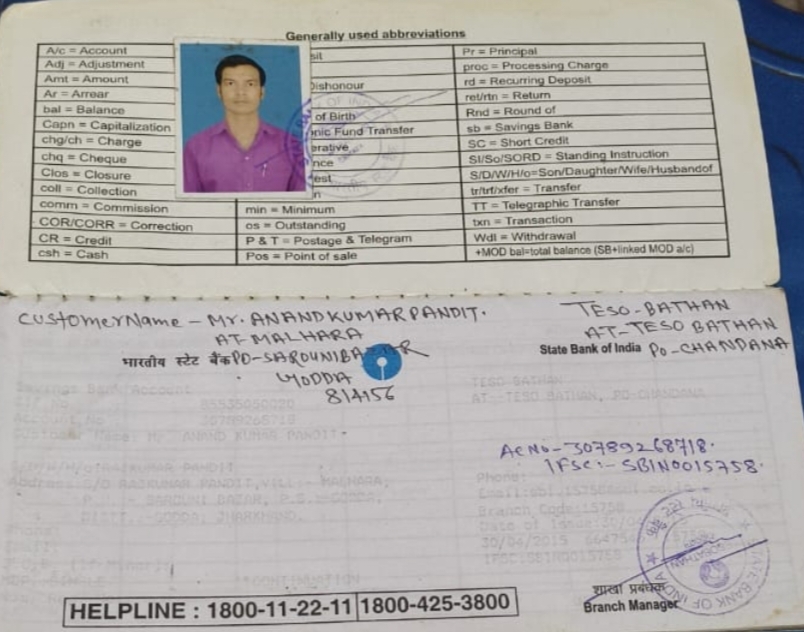 Generally used abbreviations
A/c = Account
Adj = Adjustment
Amt = Amount
Ar = Arrear
bal = Balance
Capn = Capitalization
chg/ch = Charge
chq = Cheque
Clos = Closure
coll = Collection
comm = Commission
COR/CORR = Correction
CR = Credit
csh = Cash
sit
Dishonour
of Birth
nic Fund Transfer
erative
nce
est
n
min = Minimum
os = Outstanding
P & T = Postage & Telegram
Pos = Point of sale
Pr = Principal
proc = Processing Charge
rd = Recurring Deposit
ret/rtn = Return
Rnd = Round of
sb = Savings Bank
SC = Short Credit
SI/So/SORD = Standing Instruction
S/D/W/H/o=Son/Daughter/Wife/Husbandof
tr/trf/xfer = Transfer
TT = Telegraphic Transfer
txn = Transaction
Wdl = Withdrawal
+MOD bal=total balance (SB+linked MOD a/c)
Customer Name - Mr. ANAND KUMAR PANDIT.
AT-MALHARA
भारतीय स्टेट बैंक PO-SAROUNI
GODDA
814156
TESO-BATHAN
AT-TESO BATHAN
State Bank of India Po-CHANDANA
Savings Bank Account
TESO BATHAN
AT- TESO BATHAN, PO-CHANDANA
Account No
Customer Name: Mr. ANAND KUMAR PANDIT
AcNo-30789268718.
IFSC:- SBIN0015758.
RAJKUMAR PANDIT
Address: S/O RAJKUMAR PANDIT, VILL:- MALHARA,
SAROUNI BAZAR, P.S.- GODDA,
DISTT.:-GODDA, JHARKHAND.
Phone:
Email:
Branch Code:15758
Date of Issue:
30/04/2015
IFSC:SBIN0015758
STATE BANK OF INDIA
शाखा प्रबंधक
Branch Manager
HELPLINE : 1800-11-22-11 1800-425-3800